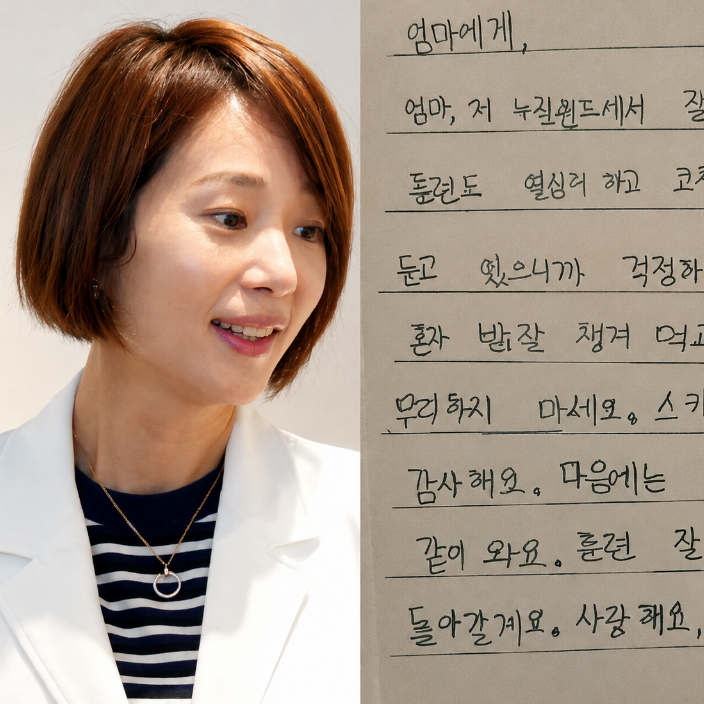 엄마에게,
엄마, 저 뉴질랜드에서 잘
훈련도 열심히 하고
두고 있으니까
혼자 밥 잘 챙겨 먹고
무리하지 마세요. 스키
감사해요. 마음에는
같이 와요. 훈련 잘
돌아갈게요. 사랑해요,